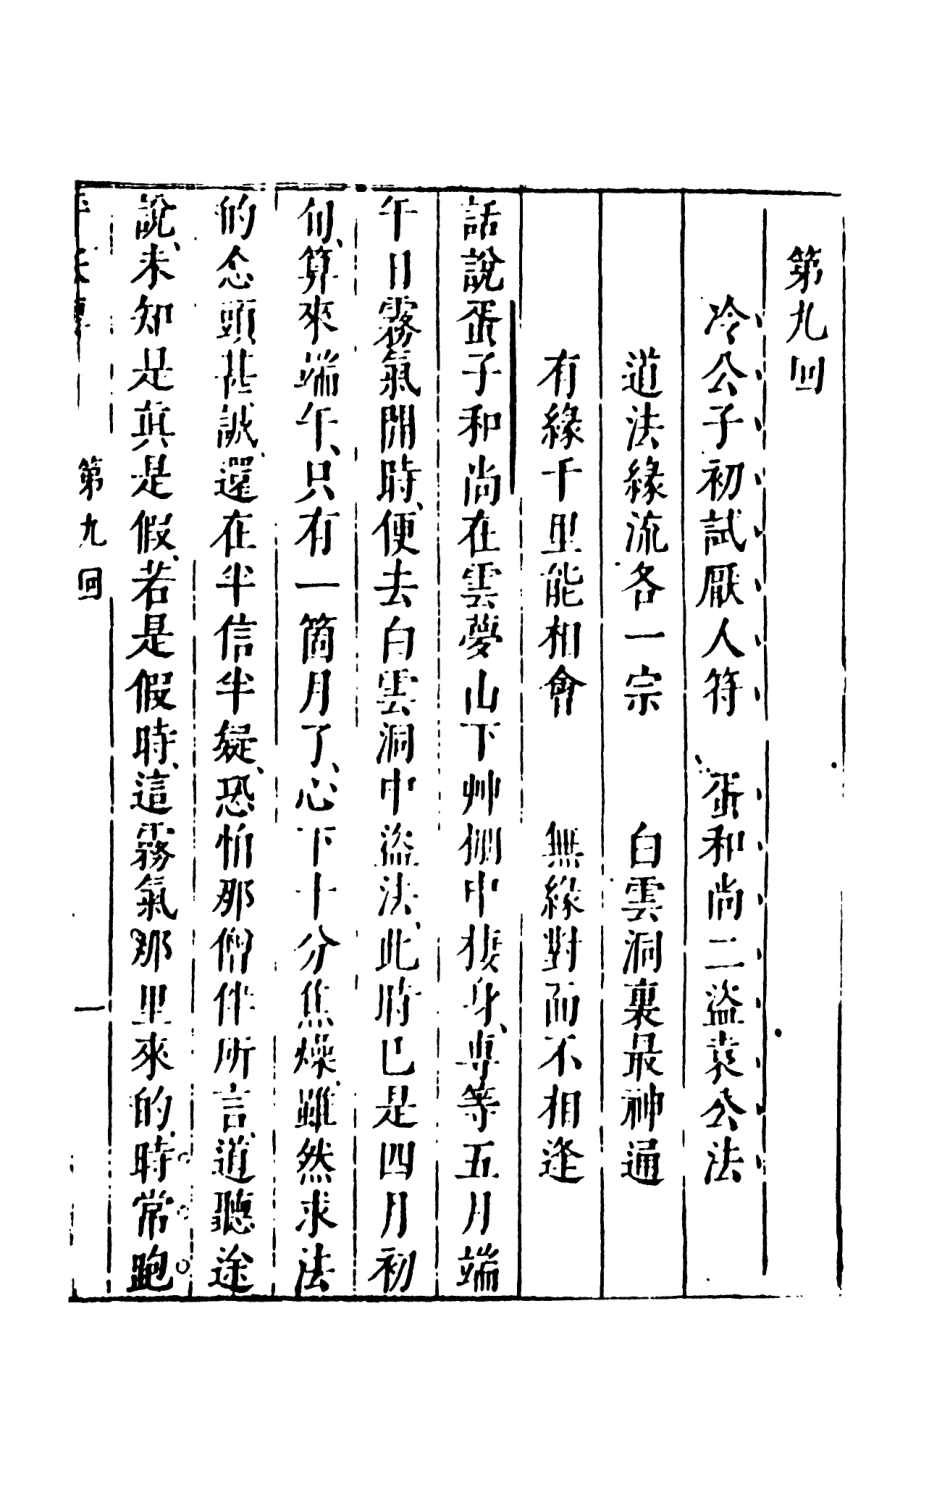 第九回
冷公子初試厭人符　蛋和尚二盜袁公法
道法緣流各一宗　白雲洞裏最神通
有緣千里能相會　無緣對面不相逢
話說蛋子和尚在雲夢山下艸棚中棲身、專等五月端
午日霧氣開時、便去白雲洞中盜法、此時已是四月初
旬、算來端午、只有一箇月了、心下十分焦燥、雖然求法
的念頭甚誠、還在半信半疑、恐怕那僧伴所言、道聽途
說、未知是真是假、若是假時、這霧氣那里來的、時常跑
第九回
一